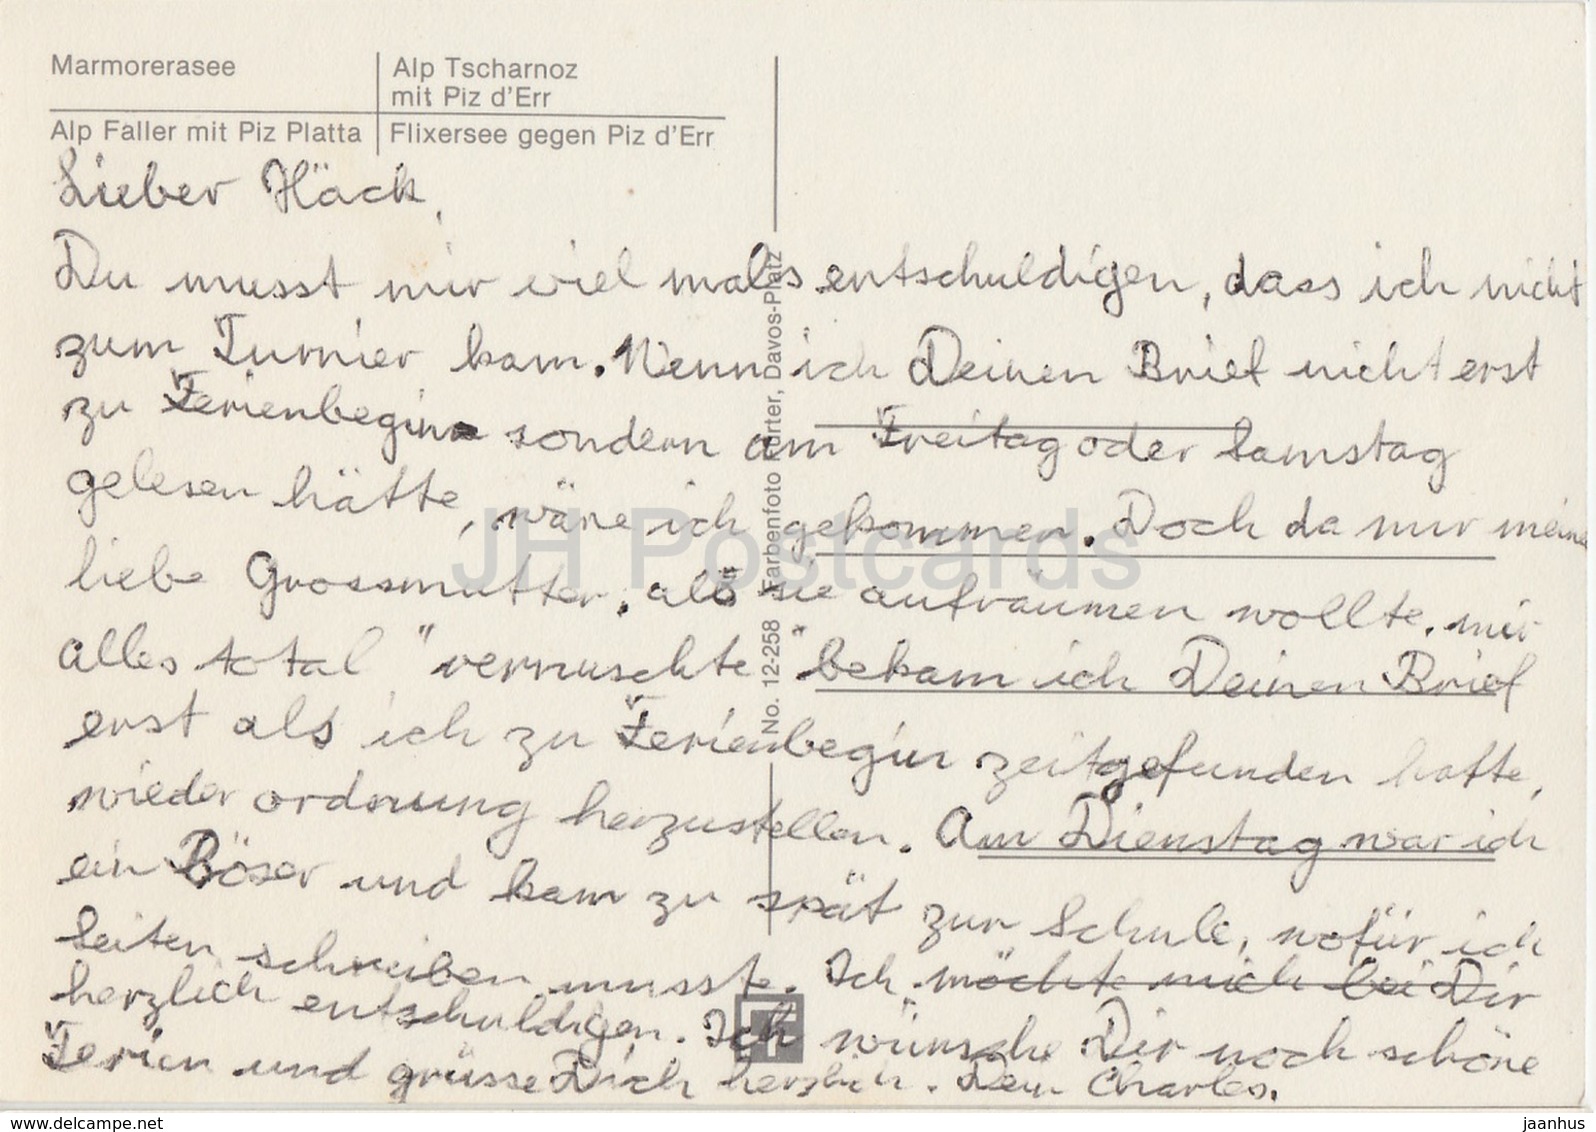 Marmorerasee
Alp Tscharnoz
mit Piz d'Err
Alp Faller mit Piz Platta
Flixersee gegen Piz d'Err
Lieber Häck,
Du musst mir viel mals entschuldigen, dass ich nicht
zum Turnier kam. Wenn ich Deinen Brief nicht erst
zu Ferienbeginn sondern am Freitag oder Samstag
gelesen hätte, wäre ich gekommen. Doch da mir meine
liebe Grossmutter, als sie aufräumen wollte, mir
alles total "verruschte" bekam ich Deinen Brief
erst als ich zu Ferienbegin zeitgefunden hatte,
wieder ordnung herzustellen. Am Dienstag war ich
ein Böser und kam zu spät zur Schule, wofür ich
Seiten schreiben musste. Ich möchte mich bei Dir
herzlich entschuldigen. Ich wünsche Dir noch schöne
Ferien und grüsse Dich herzlich. Dein Charles.
No. 12-258 Farbenfoto Furter, Davos-Platz
JH Postcards
www.delcampe.net
jaanhus